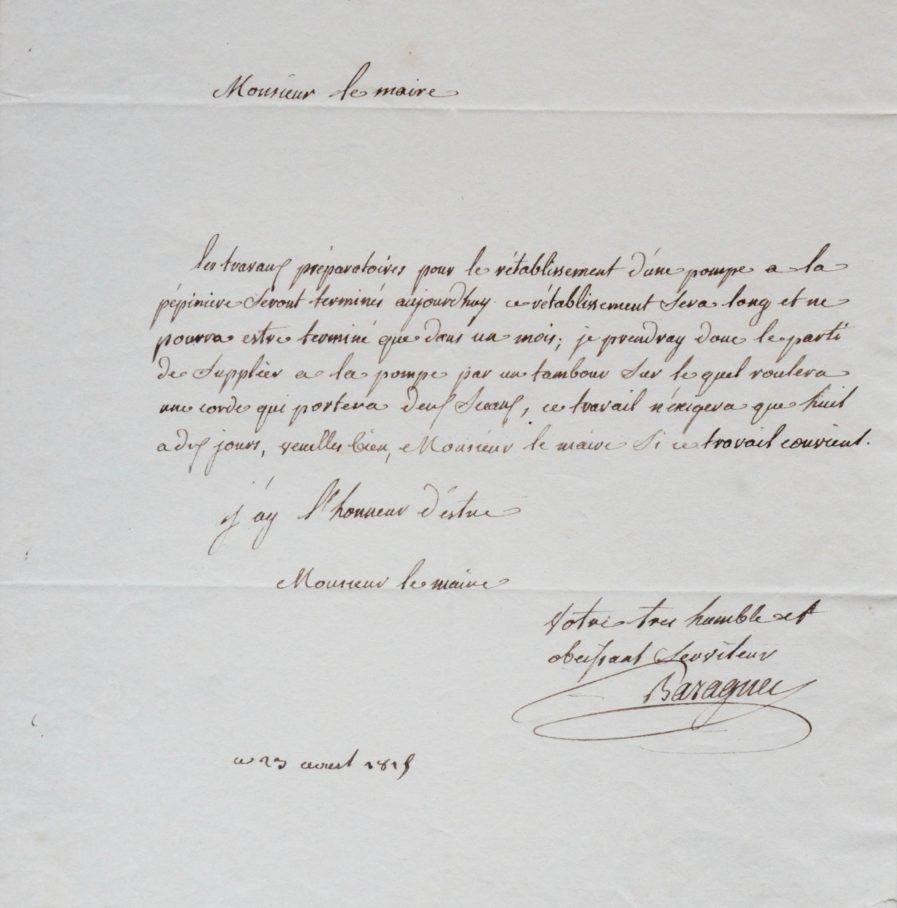 Monsieur le maire
les travaux préparatoires pour le rétablissement d'une pompe a la
pépiniere seront terminés aujourdhuy ce rétablissement sera long et ne
pourra estre terminé que dans un mois; je prendray donc le parti
de supplier a la pompe par un tambour sur le quel roulera
une corde qui portera deux sceaux, ce travail n'éxigera que huit
a dix jours, veuilles bien, Monsieur le maire si ce travail convient.
j'ay l'honneur d'estre
Monsieur le maire
Votre tres humble et
obeissant serviteur
Baraguey
a 23 aoust